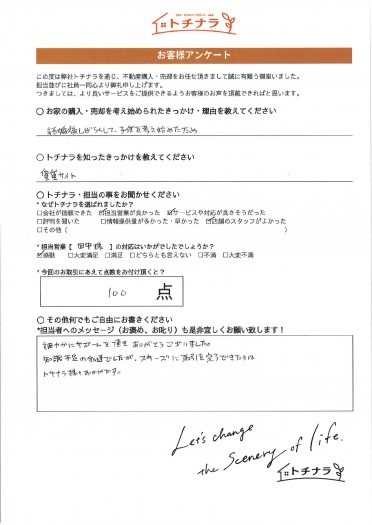 トチナラ
お客様アンケート
この度は弊社トチナラを通じ、不動産購入・売却をお任せ頂きまして誠に有難う御座いました。
担当並びに社員一同心より御礼申し上げます。
つきましては、より良いサービスをご提供できるようお客様のお声を頂戴できればと思います。
○ お家の購入・売却を考え始められたきっかけ・理由を教えてください
結婚後しばらくして、子供を考え始めたため
○ トチナラを知ったきっかけを教えてください
賃貸サイト
○ トチナラ・担当の事をお聞かせください
* なぜトチナラを選ばれましたか？
□会社が信頼できた ☑担当営業が良かった ☑サービスや対応が良さそうだった
□評判を聞いた □情報提供量が多かった・早かった ☑店舗のスタッフがよかった
□その他（ ）
* 担当営業【 田中様 】の対応はいかがでしたでしょうか？
☑感動 □大変満足 □満足 □どちらとも言えない □不満 □大変不満
* 今回のお取引にあえて点数をお付け頂くと？
100 点
○ その他何でもご自由にお書きください
*担当者へのメッセージ（お褒め、お叱り）も是非宜しくお願い致します！
細やかにサポートを頂きありがとうございました。
知識不足の私達でしたが、スムーズに取引を完了できたのは
トチナラ様のおかげです。
Let's change
the Scenery of life.
トチナラ